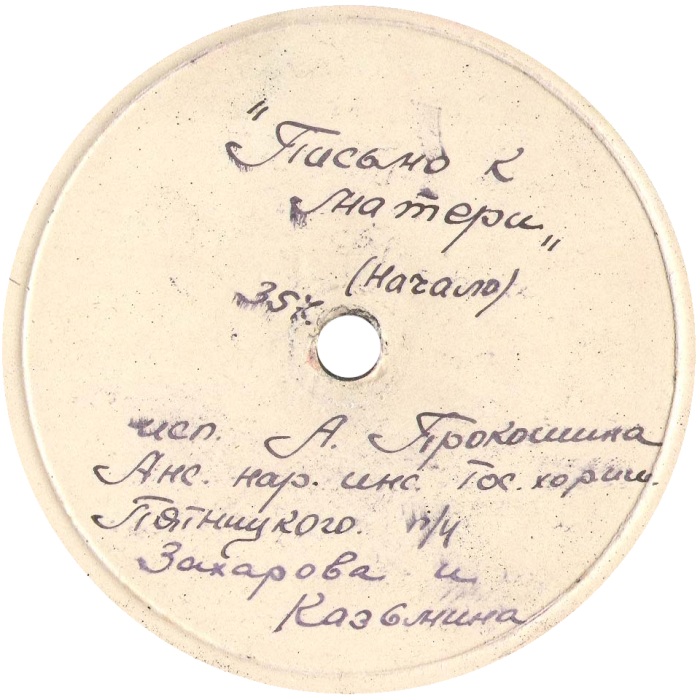 "Письмо к
матери"
(Начало)
исп. А. Прокошина
Анс. нар. инс. Гос. хор им.
Пятницкого. п/у
Захарова и
Казьмина